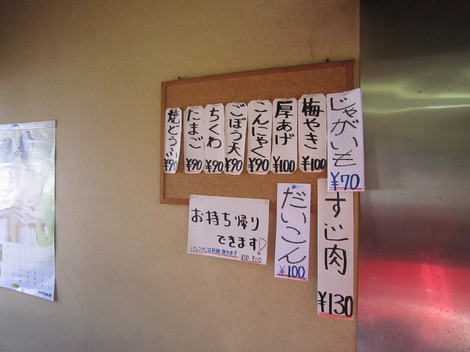 じゃがいも
¥70
梅やき
¥100
厚あげ
¥100
こんにゃく
¥90
ごぼう天
¥90
ちくわ
¥90
たまご
¥90
焼どうふ
すじ肉
¥130
だいこん
¥100
お持ち帰り
できます!